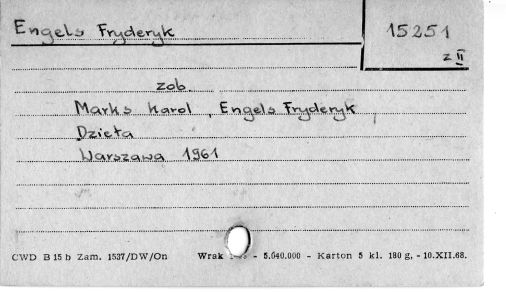 Engels Fryderyk
15251
z II
zob
Marks Karol, Engels Fryderyk
Dzieła
Warszawa 1961
CWD B 15 b Zam. 1537/DW/On Wrak - 5.040.000 - Karton 5 kl. 180 g. - 10.XII.68.